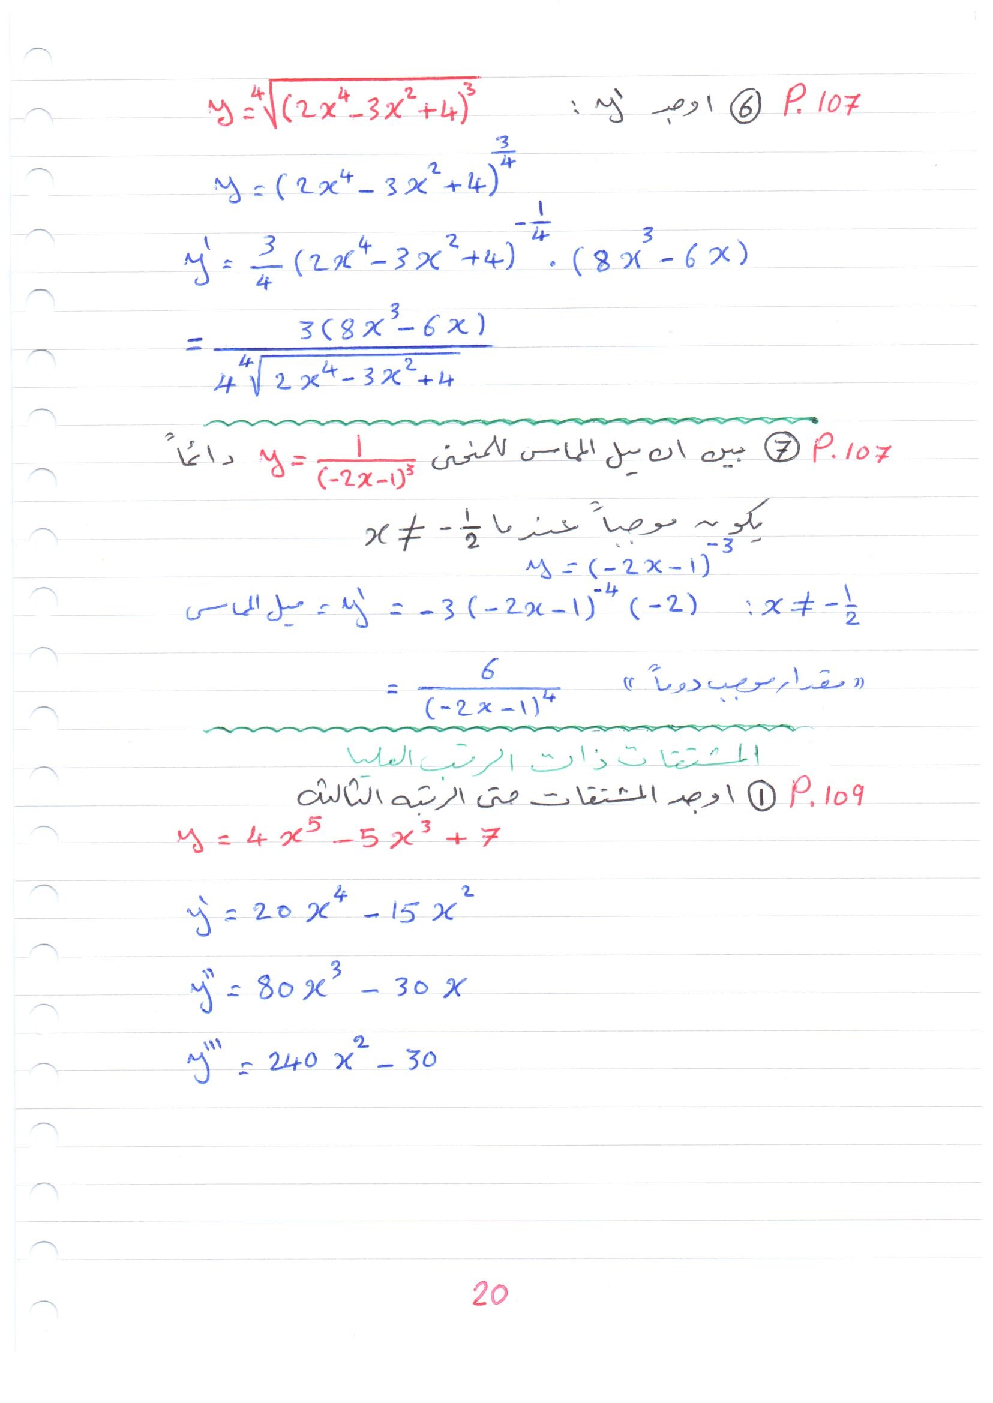 P. 107 ⑥ اوجد y' : y = ⁴√(2x⁴ - 3x² + 4)³
y = (2x⁴ - 3x² + 4)^(3/4)
y' = 3/4 (2x⁴ - 3x² + 4)^(-1/4) . (8x³ - 6x)
= 3(8x³ - 6x) / 4 ⁴√(2x⁴ - 3x² + 4)
P. 107 ⑦ بين ان ميل المماس للمنحنى y = 1/(-2x-1)³ دائماً
يكون موجباً عندما x ≠ -1/2
y = (-2x-1)^-3
ميل المماس = y' = -3(-2x-1)^-4 (-2) : x ≠ -1/2
= 6/(-2x-1)⁴ «مقدار موجب دوماً»
المشتقات ذات الرتب العليا
P. 109 ① اوجد المشتقات حتى الرتبه الثالثه
y = 4x⁵ - 5x³ + 7
y' = 20x⁴ - 15x²
y'' = 80x³ - 30x
y''' = 240x² - 30
20